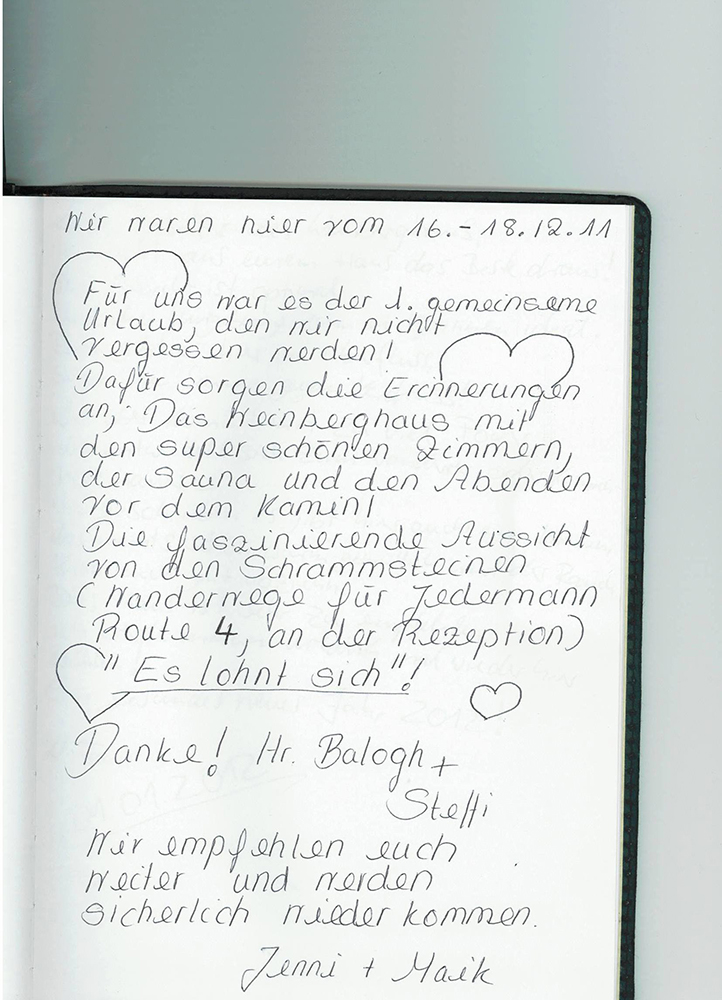 Wir waren hier vom 16.-18.12.11
Für uns war es der 1. gemeinsame
Urlaub, den wir nicht
vergessen werden!
Dafür sorgen die Erinnerungen
an, Das Weinberghaus mit
den super schönen Zimmern,
der Sauna und den Abenden
vor dem Kamin!
Die faszinierende Aussicht
von den Schrammsteinen
(Wanderwege für Jedermann
Route 4, an der Rezeption)
"Es lohnt sich"!
Danke! Hr. Balogh +
Steffi
Wir empfehlen euch
weiter und werden
sicherlich wieder kommen.
Jenni + Maik